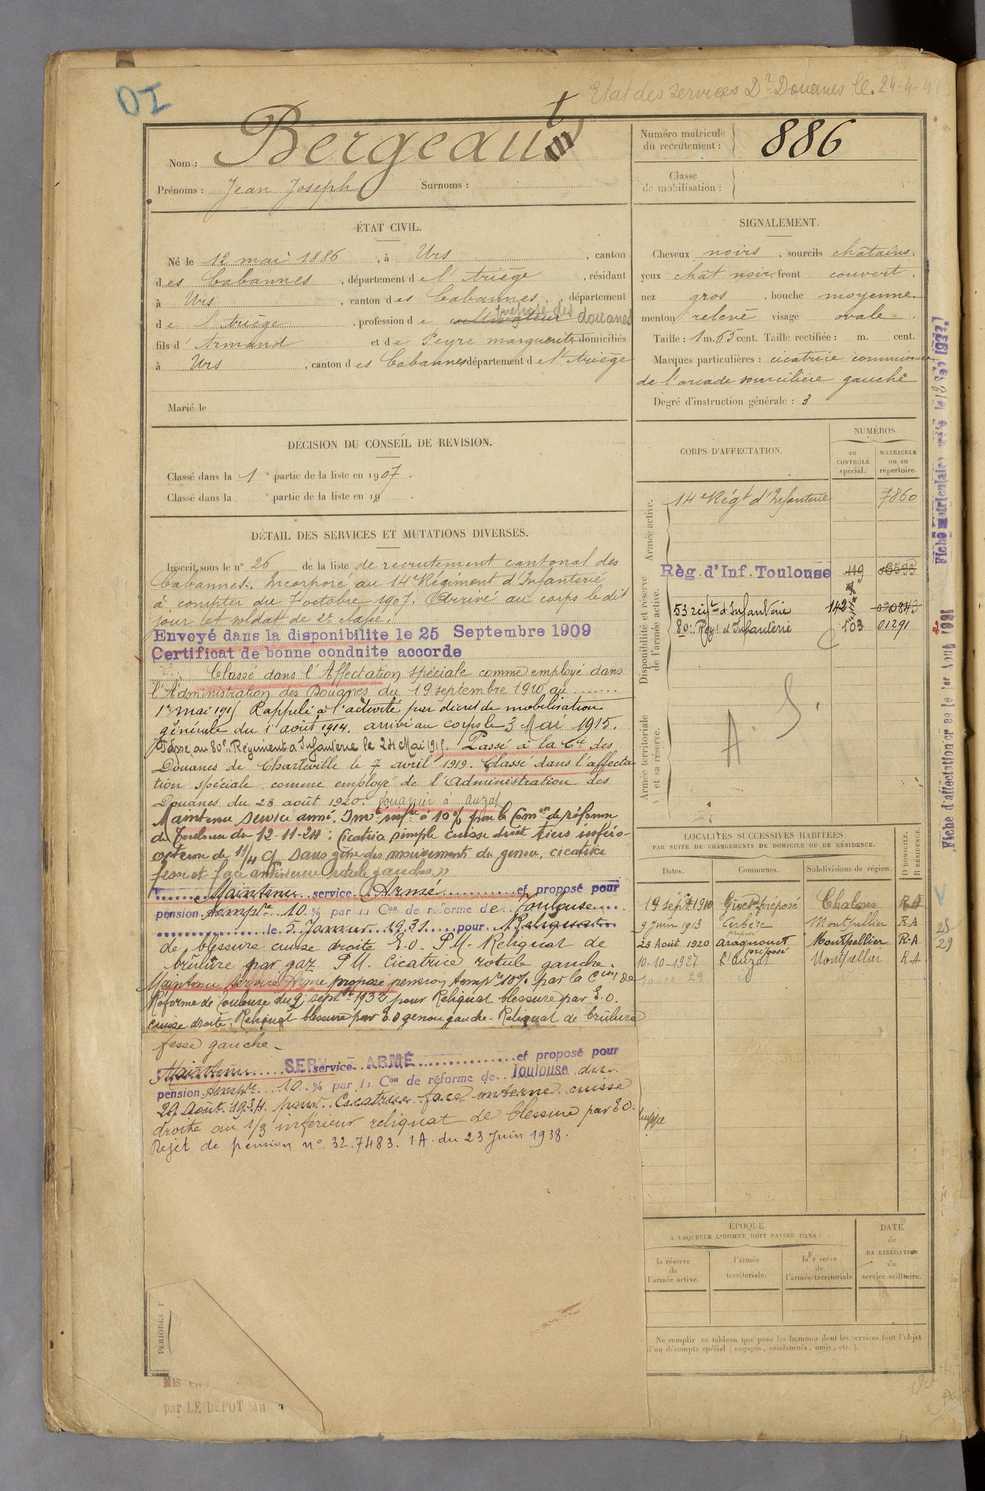 DI
Etat des services Don Douanes le 24-4-42
Nom : Bergeaut
Prénoms : Jean Joseph Surnoms :
Numéro matricule
du recrutement : 886
Classe
de mobilisation :
ÉTAT CIVIL.
Né le 12 mai 1886, à Urs, canton
des Cabannes, département de l'Ariège, résidant
à Urs, canton des Cabannes, département
de l'Ariège, profession de cultivateur préposé des douanes
fils d'Armand et de Peyre marguerite domiciliés
à Urs, canton des Cabannes département de l'Ariège
Marié le
SIGNALEMENT.
Cheveux noirs, sourcils châtains.
yeux chât noir, front couvert.
nez gros, bouche moyenne
menton relevé visage ovale.
Taille : 1 m. 65 cent. Taille rectifiée : m. cent.
Marques particulières : cicatrice commissure
de l'arcade sourcilière gauche
Degré d'instruction générale : 3
DÉCISION DU CONSEIL DE REVISION.
Classé dans la 1e partie de la liste en 1907.
Classé dans la e partie de la liste en 19 .
DÉTAIL DES SERVICES ET MUTATIONS DIVERSES.
Inscrit sous le n° 26 de la liste de recrutement cantonal des
Cabannes. Incorporé au 14e Régiment d'Infanterie
à compter du 7 octobre 1907. Arrivé au corps le dit
jour et soldat de 2e classe.
Envoyé dans la disponibilite le 25 Septembre 1909
Certificat de bonne conduite accorde
Classé dans l'Affectation spéciale comme employé dans
l'Administration des Douanes du 19 septembre 1910 au
1er mai 1915 Rappelé à l'activité par décret de mobilisation
générale du 1er août 1914. arrivé au corps le 3 Mai 1915.
Passé au 80e Régiment d'Infanterie le 24 Mai 1915. Passé à la Cie des
Douanes de Charleville le 7 avril 1919. Classé dans l'affecta
tion spéciale comme employé de l'Administration des
Douanes du 23 août 1920. Douanier à Auzat
Maintenu service armé. Inv. inf. à 10% par la Comon de réforme
de Toulouse du 12-11-24 : Cicatrice simple cuisse droite tiers inféro-
externe de sans gêne des mouvements du genou, cicatrice
fesse et face antérieure rotule gauche »
Maintenu service Armé et proposé pour
pension tempre 10 % par la Con de réforme de Toulouse
le 5 Janvier 1931 pour Reliquat
de blessure cuisse droite E.O. P.M. Reliquat de
brûlure par gaz P.M. Cicatrice rotule gauche.
Maintenu service Armé proposé pension tempre 10% par la Con de
Réforme de Toulouse du 9 septbre 1932 pour Reliquat blessure par E.O.
cuisse droite. Reliquat blessure par E.O genou gauche. Reliquat de brûlure
fesse gauche.
Maintenu SERVICE service ARMÉ et proposé pour
pension tempre 10 % par la Con de réforme de Toulouse du
29 Août 1934 pour Cicatrice face interne cuisse
droite au 1/3 inférieur reliquat de blessure par E.O.
Rejet de pension n° 32.7483. 1A. du 23 Juin 1938.
CORPS D'AFFECTATION.
NUMÉROS
au
CONTRÔLE
spécial.
MATRICULE
ou au
répertoire.
Armée active.
14e Régt d'Infanterie 7860
Disponibilité et réserve
de l'armée active.
Règ. d'Inf. Toulouse 119 08595
53 régt d'Infanterie 142 020843
80e Régt d'Infanterie 103 01291
Armée territoriale
et sa réserve.
A. S.
LOCALITÉS SUCCESSIVES HABITÉES
PAR SUITE DE CHANGEMENTS DE DOMICILE OU DE RÉSIDENCE.
Dates. Communes. Subdivisions de région. D DOMICILE. R RÉSIDENCE.
19 sept 1910 Givet préposé Chalons R A
9 Juin 1913 Cerbère Montpellier R A
23 Août 1920 Aragnouet Montpellier R A
10-10-1927 l'Auzat préposé Montpellier R A
28
29
ÉPOQUE
À LAQUELLE L'HOMME DOIT PASSER DANS :
la réserve
de
l'armée active.
l'armée
territoriale.
la réserve
de
l'armée territoriale
DATE
de
LA LIBÉRATION
du
service militaire.
Ne remplir ce tableau que pour les hommes dont les services font l'objet
d'un décompte spécial (engagés, condamnés, omis, etc.).
PÉRIODES
par LE DEPOT